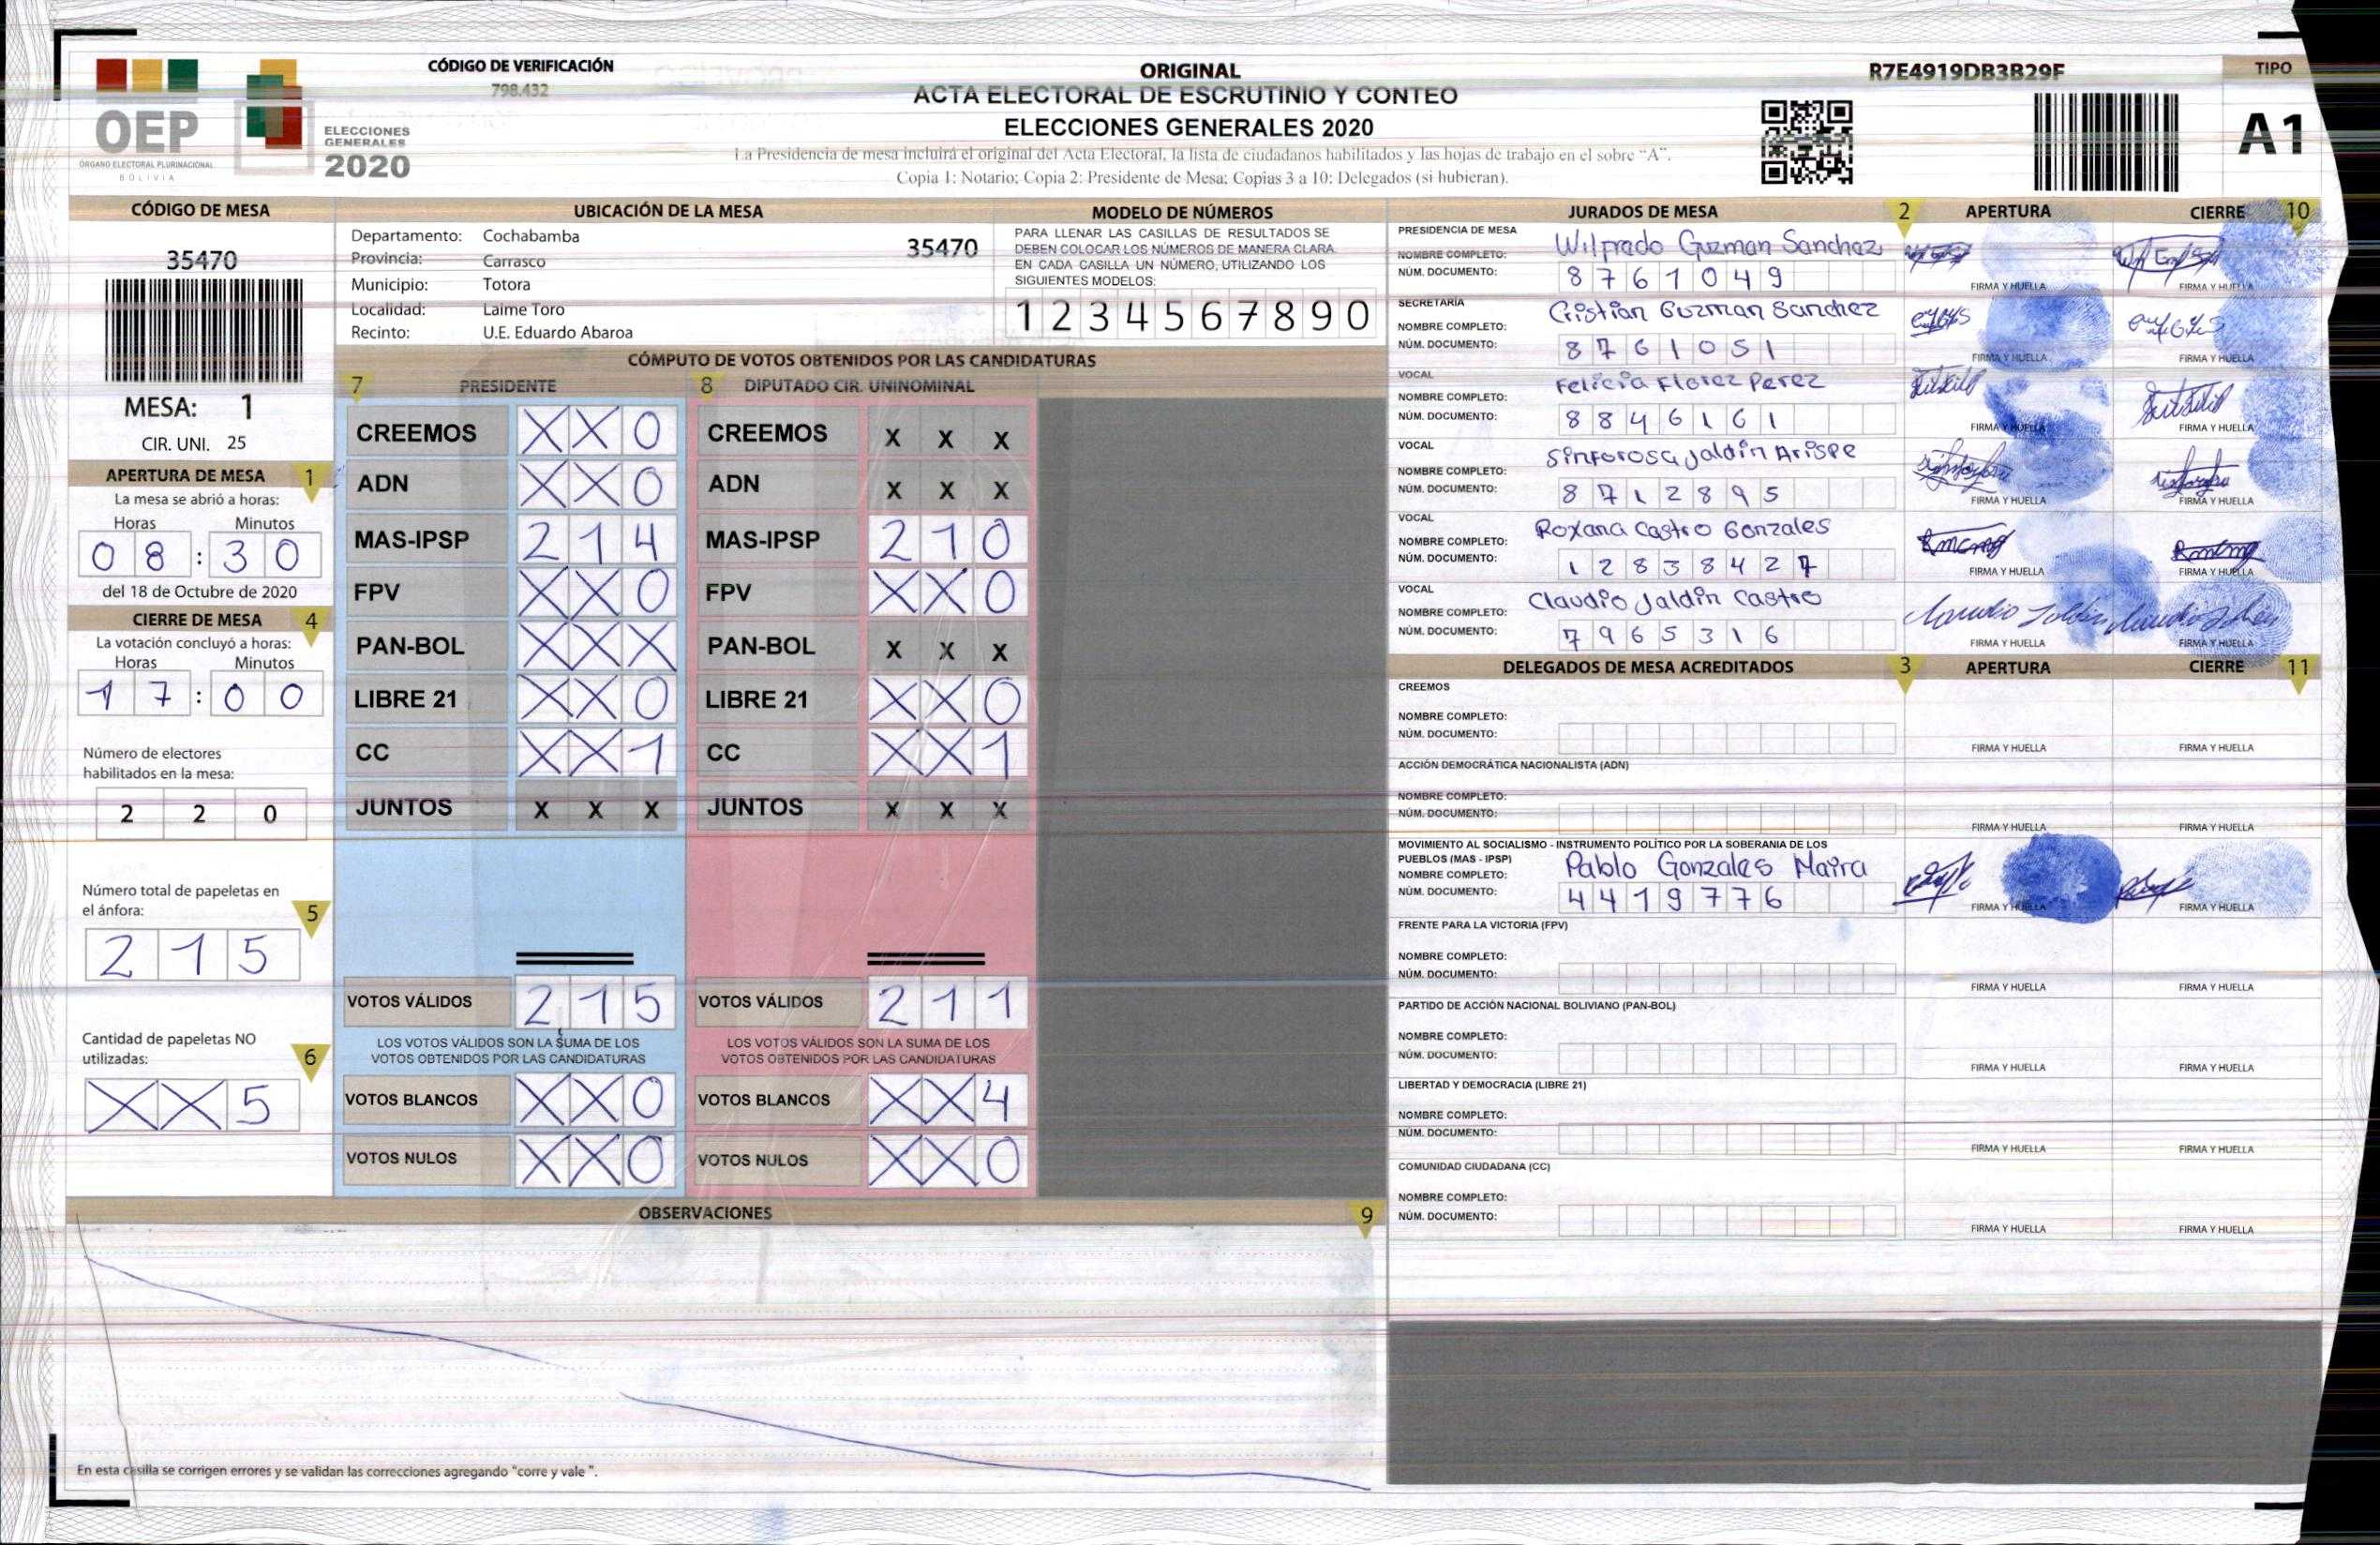 CÓDIGO DE VERIFICACIÓN
798.432
OEP
ÓRGANO ELECTORAL PLURINACIONAL
BOLIVIA
ELECCIONES
GENERALES
2020
ORIGINAL
ACTA ELECTORAL DE ESCRUTINIO Y CONTEO
ELECCIONES GENERALES 2020
La Presidencia de mesa incluirá el original del Acta Electoral, la lista de ciudadanos habilitados y las hojas de trabajo en el sobre “A”.
Copia 1: Notario; Copia 2: Presidente de Mesa; Copias 3 a 10: Delegados (si hubieran).
R7E4919DB3B29F
TIPO
A1
CÓDIGO DE MESA
35470
MESA: 1
CIR. UNI. 25
APERTURA DE MESA 1
La mesa se abrió a horas:
Horas Minutos
08:30
del 18 de Octubre de 2020
CIERRE DE MESA 4
La votación concluyó a horas:
Horas Minutos
17:00
Número de electores
habilitados en la mesa:
2 2 0
Número total de papeletas en
el ánfora: 5
2 1 5
Cantidad de papeletas NO
utilizadas: 6
X X 5
UBICACIÓN DE LA MESA
Departamento: Cochabamba
Provincia: Carrasco
Municipio: Totora
Localidad: Laime Toro
Recinto: U.E. Eduardo Abaroa
35470
MODELO DE NÚMEROS
PARA LLENAR LAS CASILLAS DE RESULTADOS SE
DEBEN COLOCAR LOS NÚMEROS DE MANERA CLARA.
EN CADA CASILLA UN NÚMERO, UTILIZANDO LOS
SIGUIENTES MODELOS:
1 2 3 4 5 6 7 8 9 0
CÓMPUTO DE VOTOS OBTENIDOS POR LAS CANDIDATURAS
7 PRESIDENTE 8 DIPUTADO CIR. UNINOMINAL
CREEMOS X X 0 CREEMOS X X X
ADN X X 0 ADN X X X
MAS-IPSP 2 1 4 MAS-IPSP 2 1 0
FPV X X 0 FPV X X 0
PAN-BOL X X X PAN-BOL X X X
LIBRE 21 X X 0 LIBRE 21 X X 0
CC X X 1 CC X X 1
JUNTOS X X X JUNTOS X X X
VOTOS VÁLIDOS 2 1 5 VOTOS VÁLIDOS 2 1 1
LOS VOTOS VÁLIDOS SON LA SUMA DE LOS LOS VOTOS VÁLIDOS SON LA SUMA DE LOS
VOTOS OBTENIDOS POR LAS CANDIDATURAS VOTOS OBTENIDOS POR LAS CANDIDATURAS
VOTOS BLANCOS X X 0 VOTOS BLANCOS X X 4
VOTOS NULOS X X 0 VOTOS NULOS X X 0
OBSERVACIONES 9
En esta casilla se corrigen errores y se validan las correcciones agregando "corre y vale ".
JURADOS DE MESA 2 APERTURA CIERRE 10
PRESIDENCIA DE MESA
NOMBRE COMPLETO: Wilfrado Guzman Sanchez
NÚM. DOCUMENTO: 8761049
FIRMA Y HUELLA FIRMA Y HUELLA
SECRETARÍA
NOMBRE COMPLETO: Cristian Guzman Sanchez
NÚM. DOCUMENTO: 8761051
FIRMA Y HUELLA FIRMA Y HUELLA
VOCAL
NOMBRE COMPLETO: Felicia Florez Perez
NÚM. DOCUMENTO: 8846161
FIRMA Y HUELLA FIRMA Y HUELLA
VOCAL
NOMBRE COMPLETO: Sinforosa Jaldin Arispe
NÚM. DOCUMENTO: 8712895
FIRMA Y HUELLA FIRMA Y HUELLA
VOCAL
NOMBRE COMPLETO: Roxana Castro Gonzales
NÚM. DOCUMENTO: 12838427
FIRMA Y HUELLA FIRMA Y HUELLA
VOCAL
NOMBRE COMPLETO: Claudio Jaldin Castro
NÚM. DOCUMENTO: 7965316
FIRMA Y HUELLA FIRMA Y HUELLA
DELEGADOS DE MESA ACREDITADOS 3 APERTURA CIERRE 11
CREEMOS
NOMBRE COMPLETO:
NÚM. DOCUMENTO:
FIRMA Y HUELLA FIRMA Y HUELLA
ACCIÓN DEMOCRÁTICA NACIONALISTA (ADN)
NOMBRE COMPLETO:
NÚM. DOCUMENTO:
FIRMA Y HUELLA FIRMA Y HUELLA
MOVIMIENTO AL SOCIALISMO - INSTRUMENTO POLÍTICO POR LA SOBERANIA DE LOS
PUEBLOS (MAS - IPSP)
NOMBRE COMPLETO: Pablo Gonzales Maira
NÚM. DOCUMENTO: 4419776
FIRMA Y HUELLA FIRMA Y HUELLA
FRENTE PARA LA VICTORIA (FPV)
NOMBRE COMPLETO:
NÚM. DOCUMENTO:
FIRMA Y HUELLA FIRMA Y HUELLA
PARTIDO DE ACCIÓN NACIONAL BOLIVIANO (PAN-BOL)
NOMBRE COMPLETO:
NÚM. DOCUMENTO:
FIRMA Y HUELLA FIRMA Y HUELLA
LIBERTAD Y DEMOCRACIA (LIBRE 21)
NOMBRE COMPLETO:
NÚM. DOCUMENTO:
FIRMA Y HUELLA FIRMA Y HUELLA
COMUNIDAD CIUDADANA (CC)
NOMBRE COMPLETO:
NÚM. DOCUMENTO:
FIRMA Y HUELLA FIRMA Y HUELLA